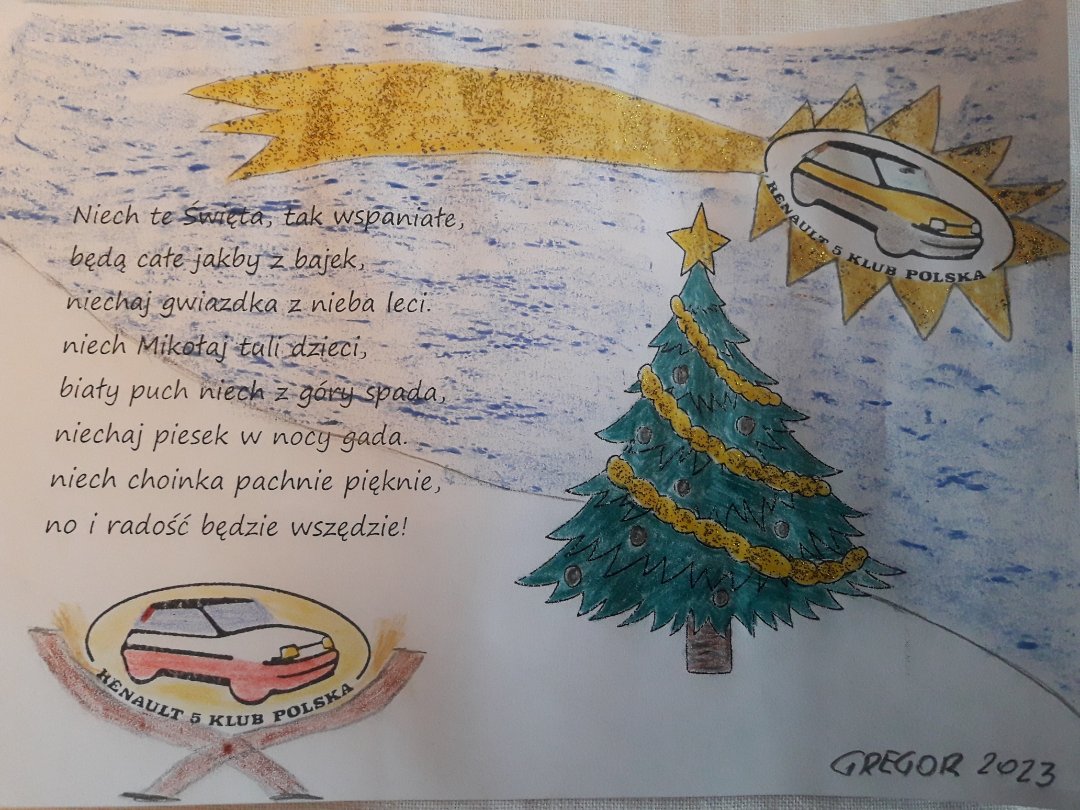 Niech te Święta, tak wspaniałe,
będą całe jakby z bajek,
niechaj gwiazdka z nieba leci.
niech Mikołaj tuli dzieci,
biały puch niech z góry spada,
niechaj piesek w nocy gada.
niech choinka pachnie pięknie,
no i radość będzie wszędzie!
RENAULT 5 KLUB POLSKA
RENAULT 5 KLUB POLSKA
GREGOR 2023